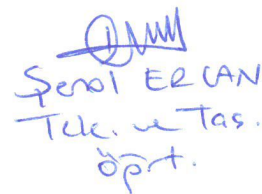 Şenol ERCAN
Tek. ve Tas.
Öğrt.